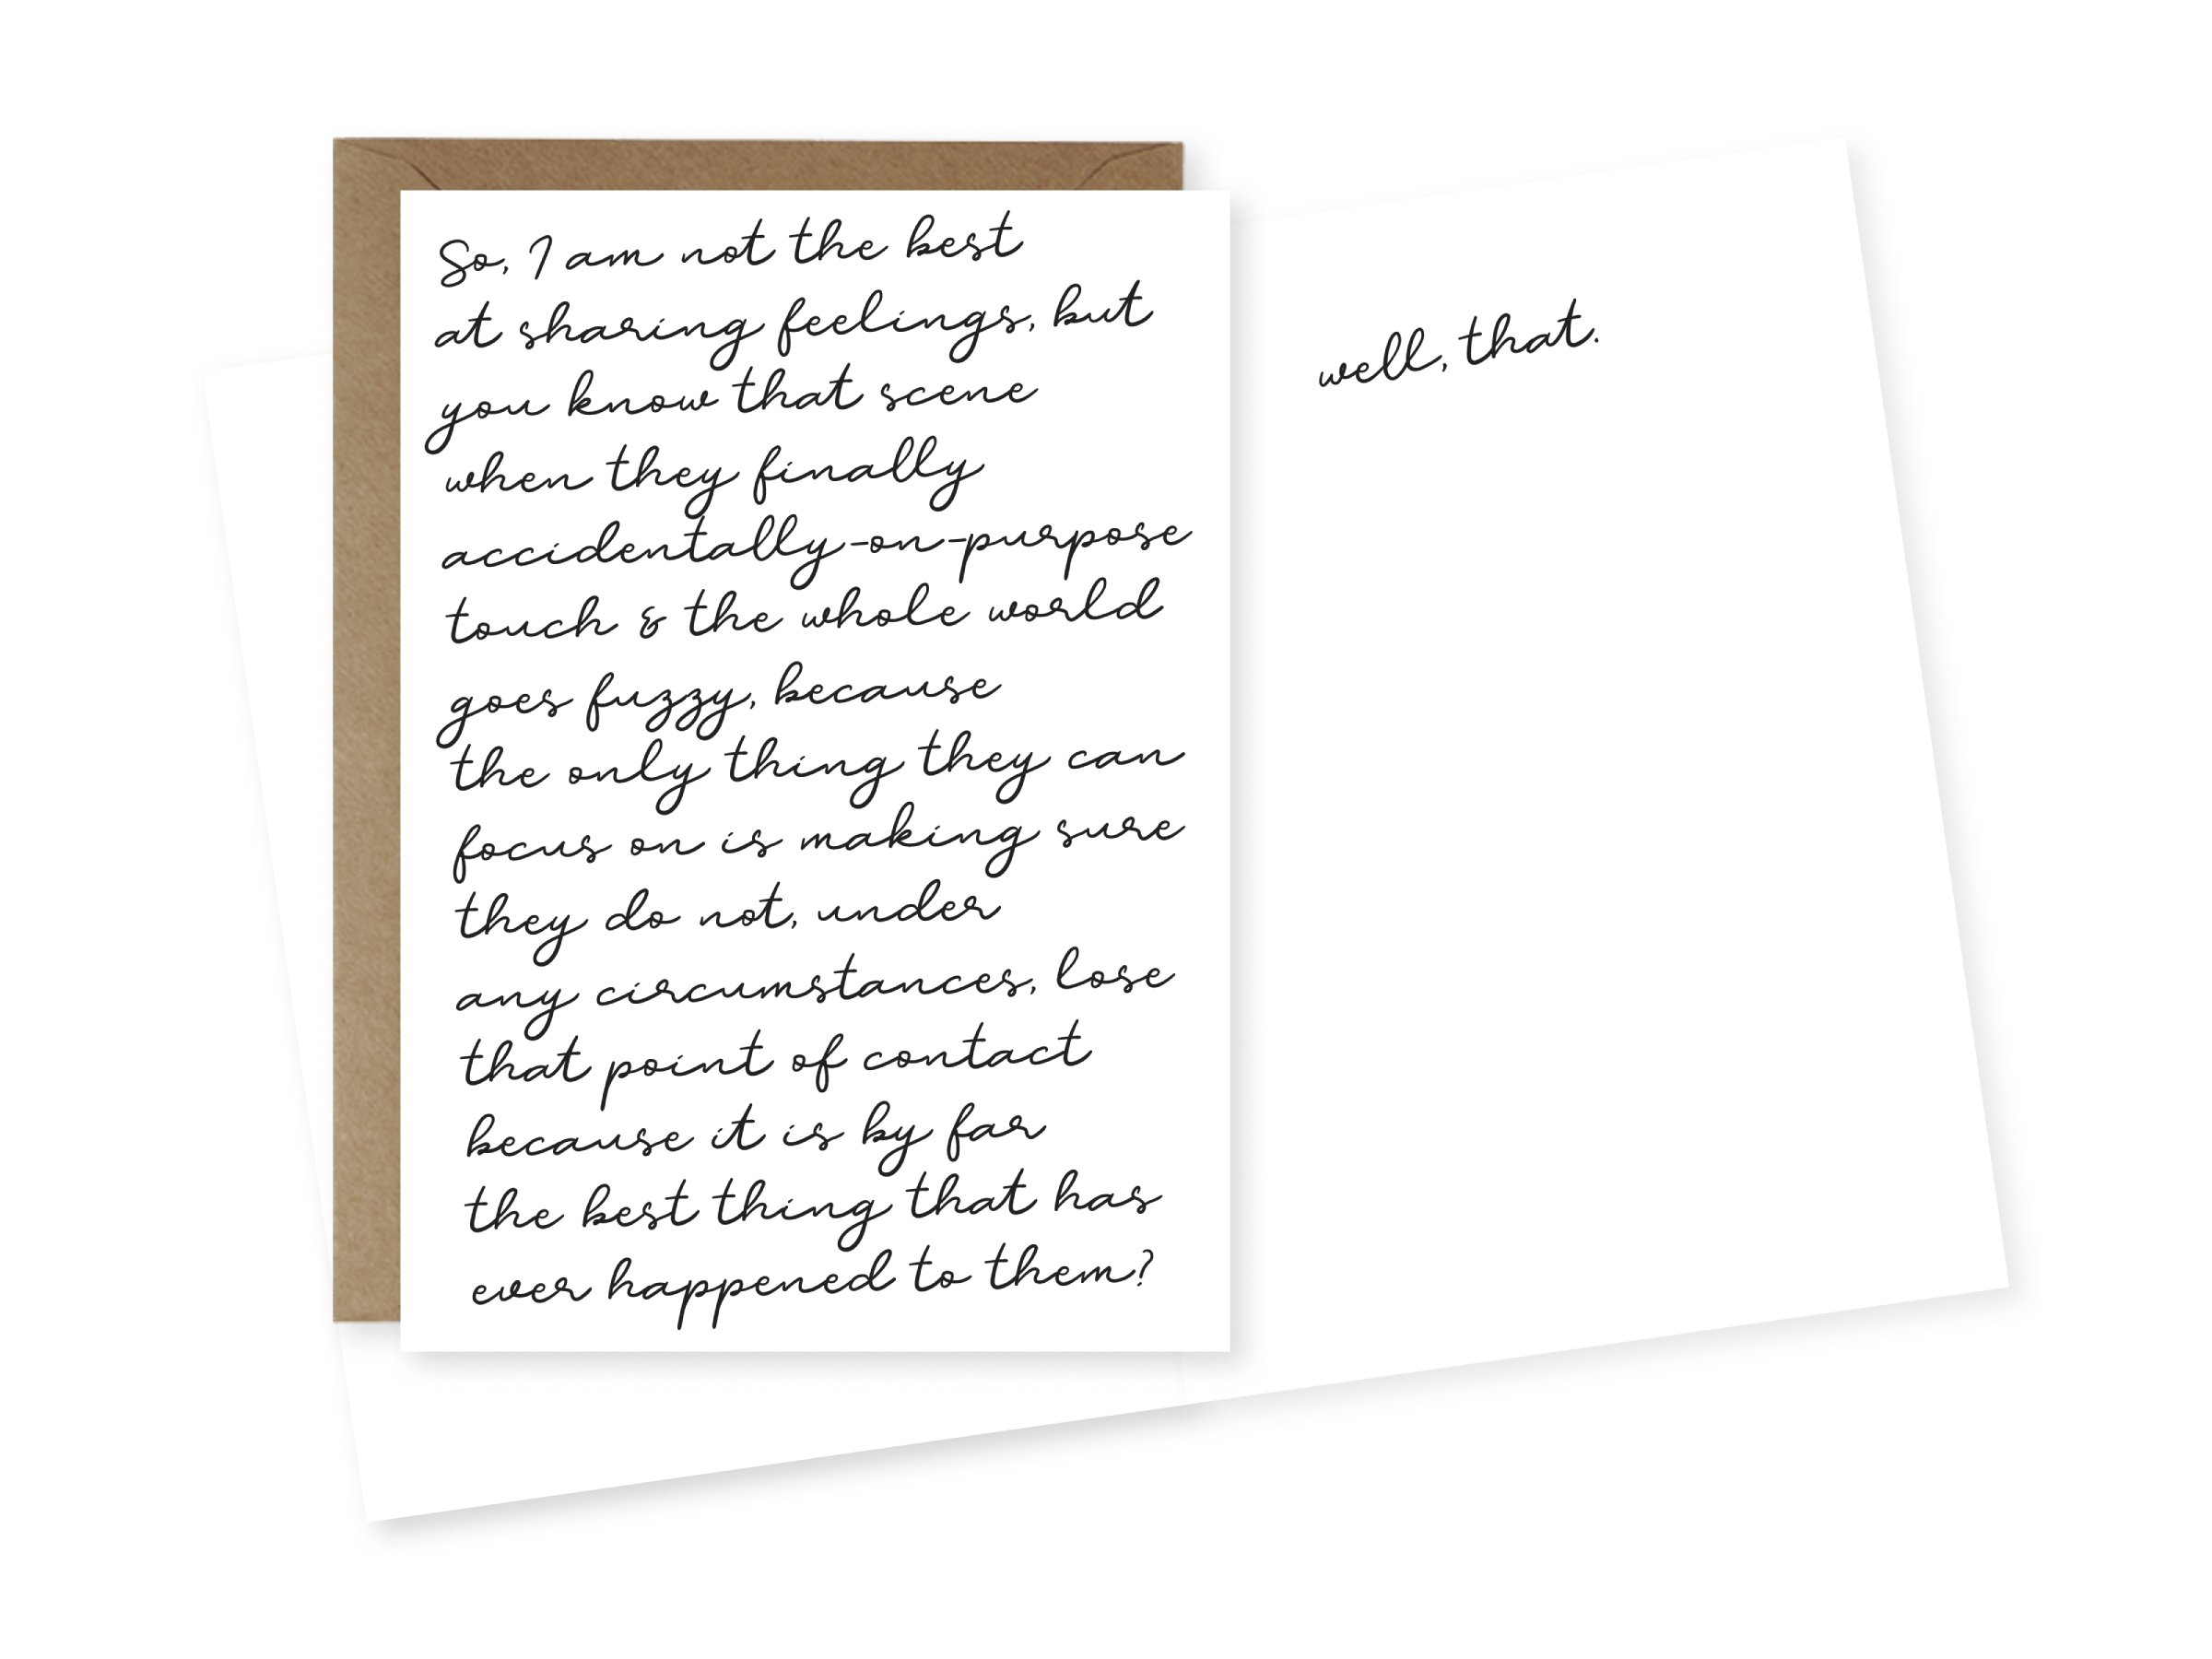 So, I am not the best
at sharing feelings, but
you know that scene
when they finally
accidentally-on-purpose
touch & the whole world
goes fuzzy, because
the only thing they can
focus on is making sure
they do not, under
any circumstances, lose
that point of contact
because it is by far
the best thing that has
ever happened to them?
well, that.